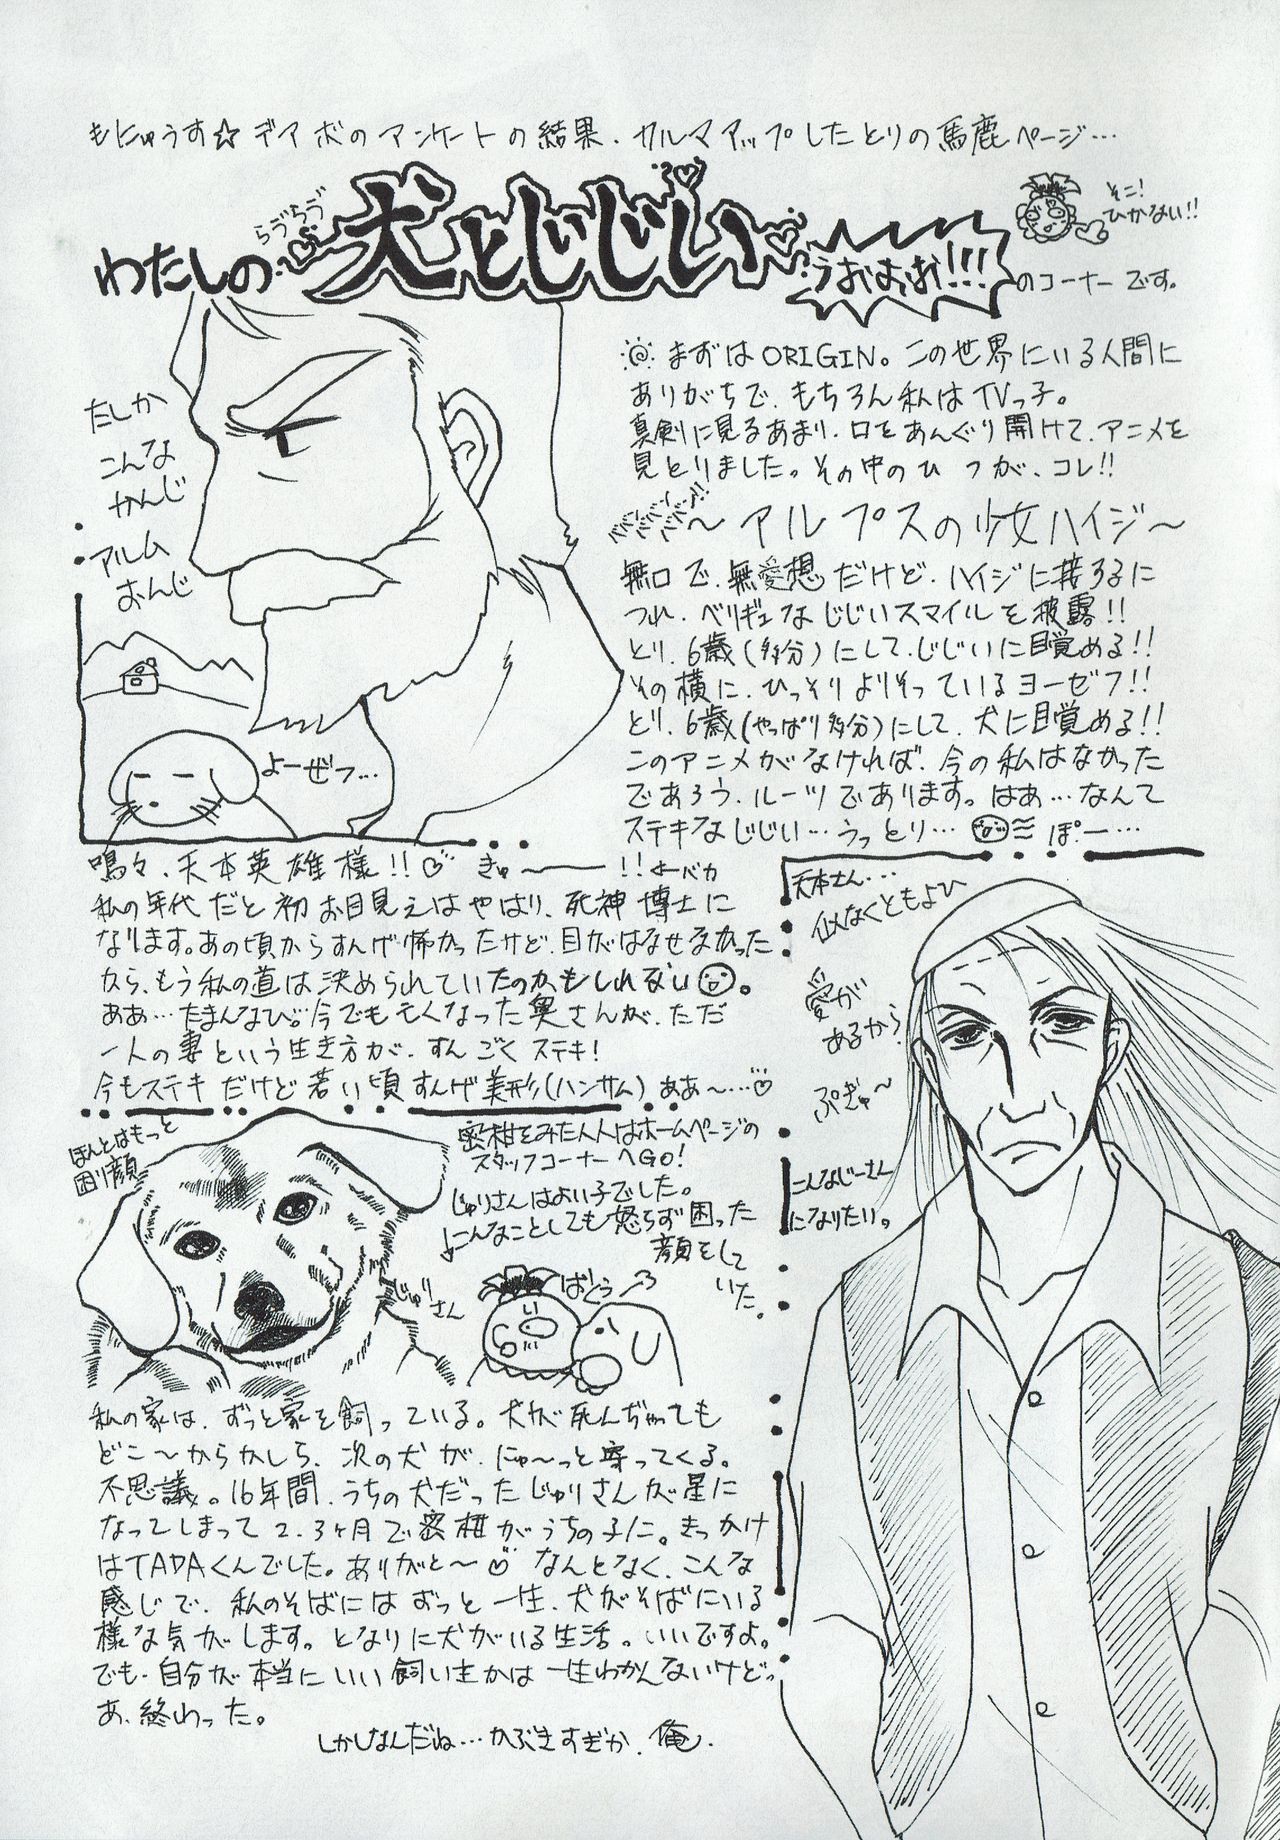 もにゅうす☆デアボのアンケートの結果、カルマアップしたとりの馬鹿ページ…
らぶらぶ
わたしの♡犬とじじい♡うおぉぉ!!!のコーナーです。
そこ!
ひかない!!
まずはORIGIN。この世界にいる人間に
ありがちで、もちろん私はTVっ子。
真剣に見るあまり、口をあんぐり開けて、アニメを
見とりました。その中のひとつが、コレ!!
〜アルプスの少女ハイジ〜
無口で、無愛想だけど、ハイジに接するに
つれ、ベリギュなじじいスマイルを披露!!
とり、6歳(多分)にして、じじいに目覚める!!
その横に、ひっそりよりそっているヨーゼフ!!
とり、6歳(やっぱり多分)にして、犬に目覚める!!
このアニメがなければ、今の私はなかった
であろう、ルーツであります。はあ…なんて
ステキなじじい…うっとり… ぽー…
たしか
こんな
かんじ
アルム
おんじ
よーぜフ…
嗚々、天本英雄様!!♡ きゅ〜――!!←バカ
私の年代だと初お目見えはやはり、死神博士に
なります。あの頃からすんげ怖かったけど、目がはなせなかった
から、もう私の道は決められていたのかもしれない。
ああ…たまんなひ。今でも亡くなった奥さんが、ただ
一人の妻という生き方が、すんごくステキ!
今もステキだけど若い頃すんげ美形(ハンサム)ああ〜…♡
天本さん…
似なくともよひ
愛が
あるから
ぷぎゅ〜
こんなじーさん
になりたい。
ほんとはもっと
困り顔
密柑をみた人はホームページの
スタッフコーナーへGO!
じゅりさんはよい子でした。
こんなことしても怒らず困った
顔をして
いた。
じゅりさん
ばくぅ
私の家は、ずっと家を飼っている。犬が死んぢゃっても
どこ〜からかしら、次の犬が、にゅ〜っと寄ってくる。
不思議。16年間、うちの犬だったじゅりさんが星に
なってしまって2、3ヶ月で密柑がうちの子に。きっかけ
はTADAくんでした。ありがと〜♡ なんとなく、こんな
感じで、私のそばにはずっと一生、犬がそばにいる
様な気がします。となりに犬がいる生活。いいですよ。
でも、自分が本当にいい飼い主かは一生わかんないけどっ
あ、終わった。
しかしなんだね…かぶきすぎか、俺。